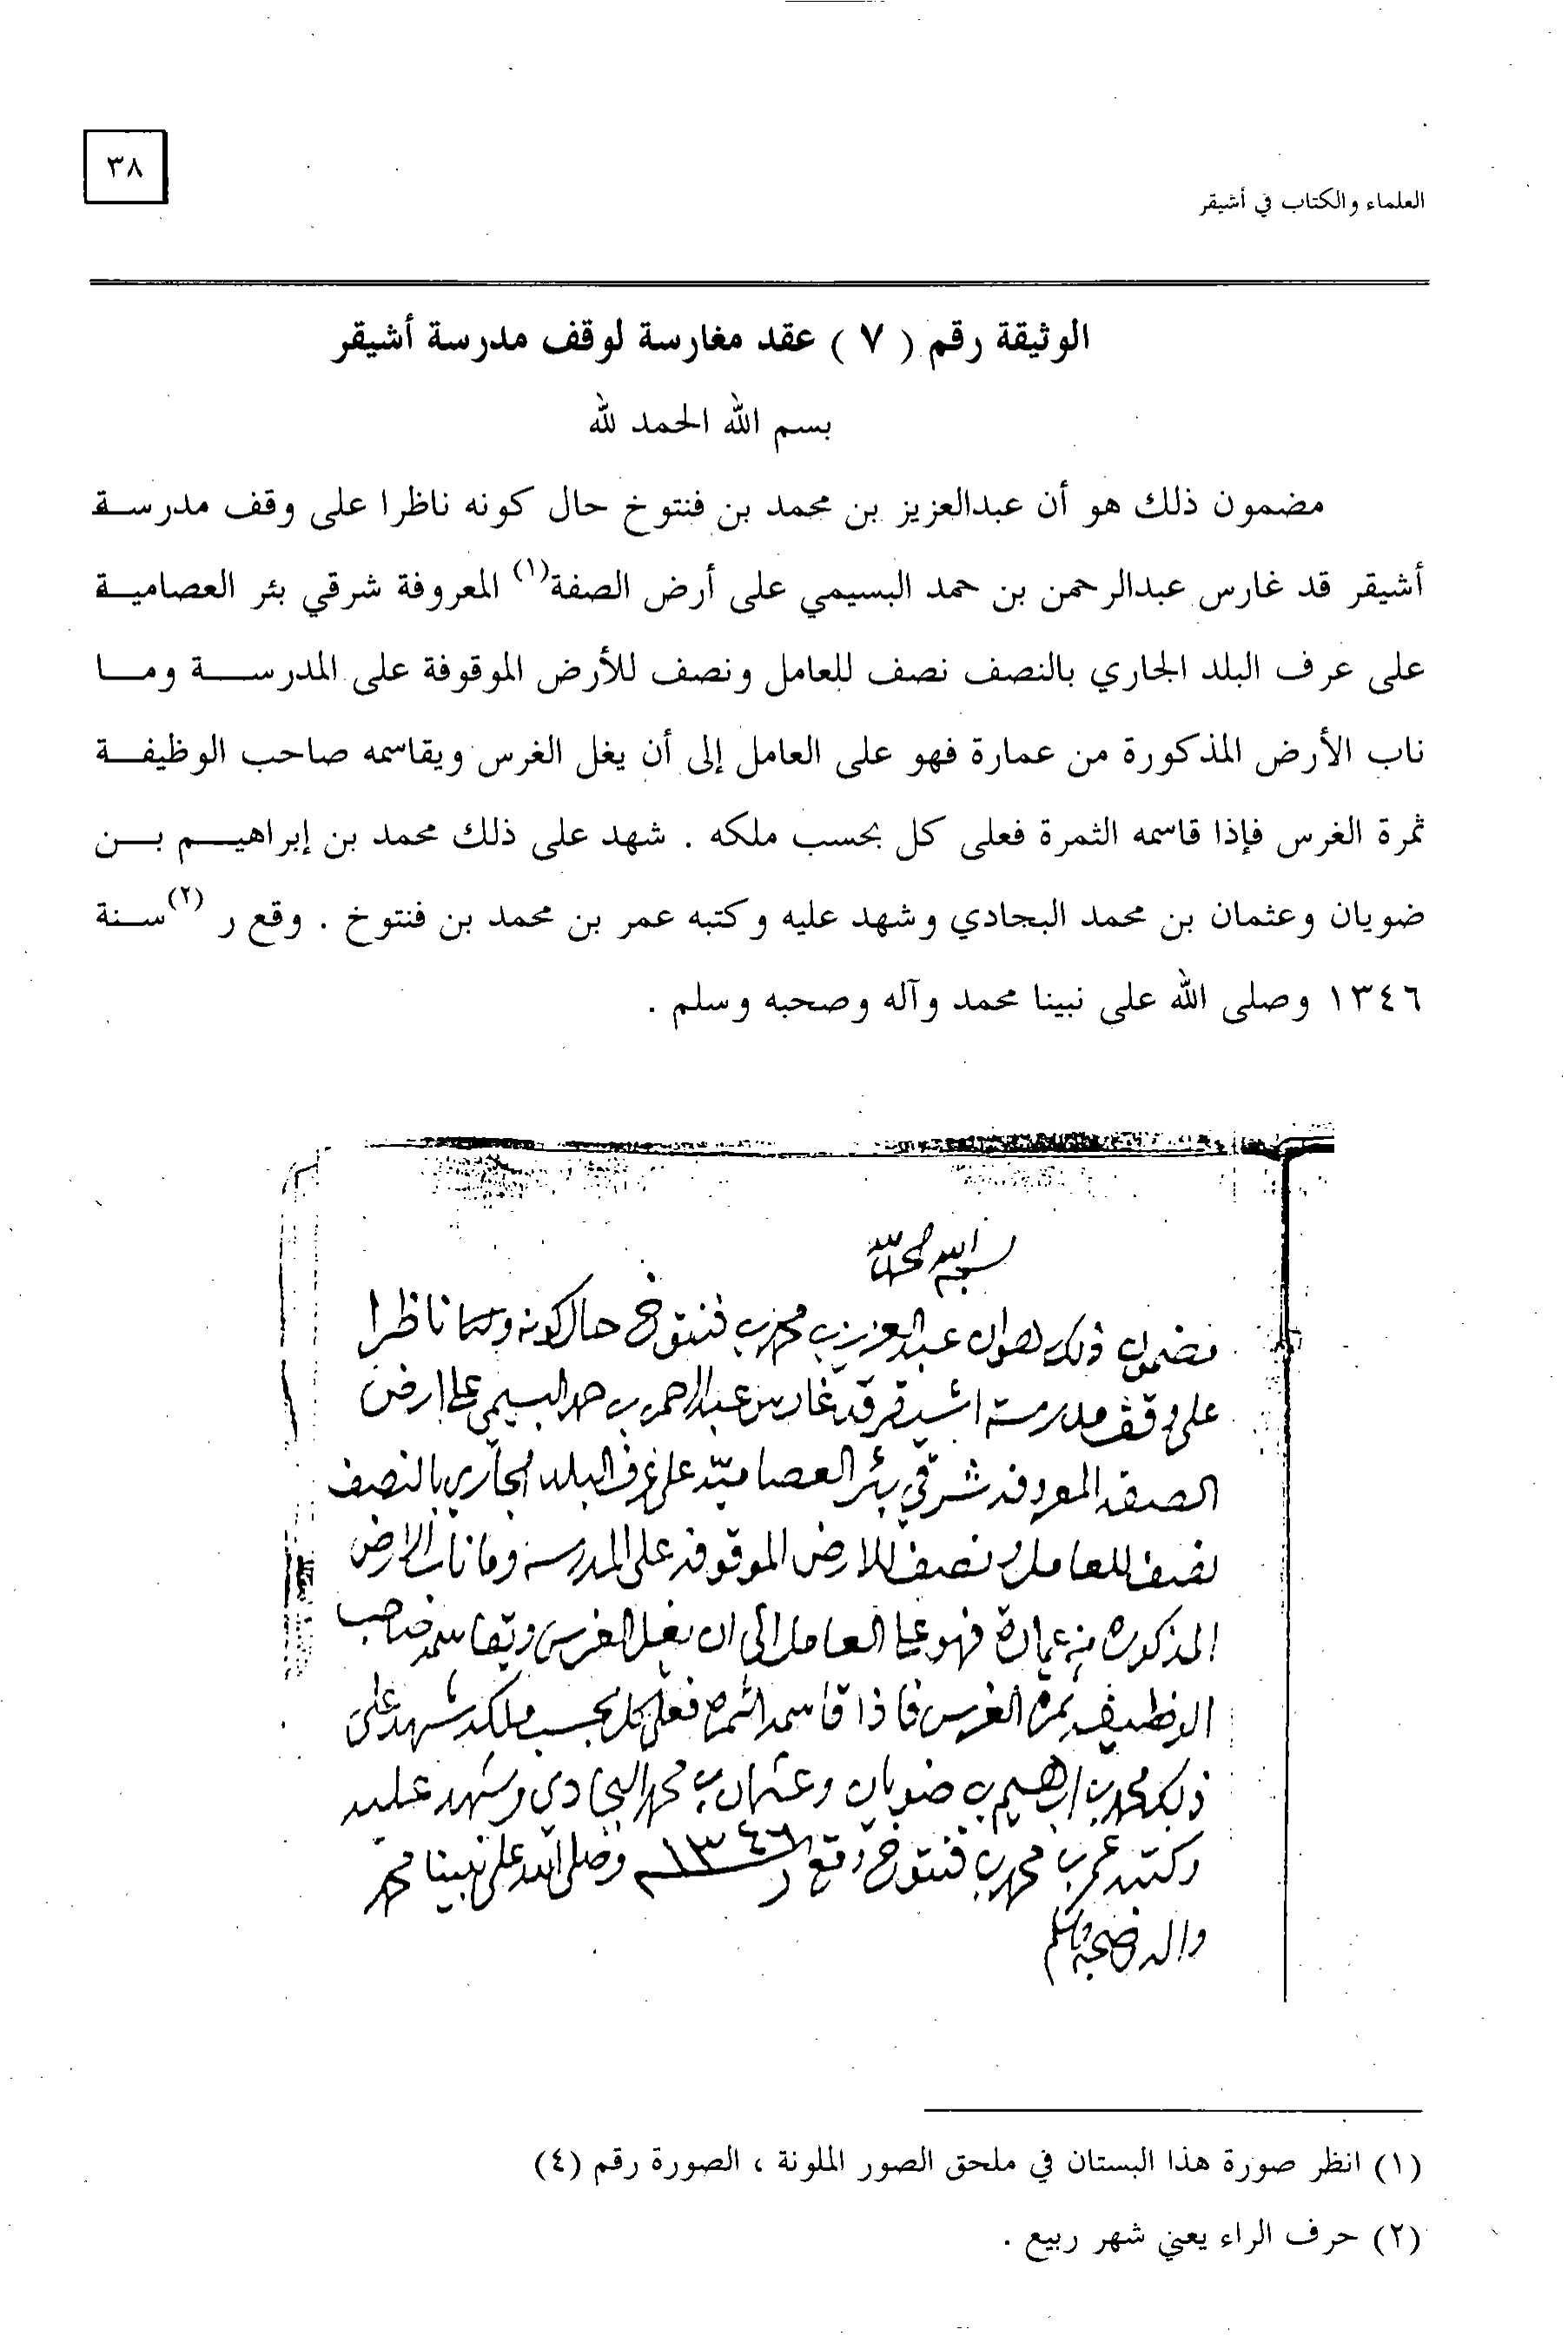 ٣٨
العلماء والكتاب في أشيقر
الوثيقة رقم ( ٧ ) عقد مغارسة لوقف مدرسة أشيقر
بسم الله الحمد لله
مضمون ذلك هو أن عبدالعزيز بن محمد بن فنتوخ حال كونه ناظرا على وقف مدرسة
أشيقر قد غارس عبدالرحمن بن حمد البسيمي على أرض الصفة(١) المعروفة شرقي بئر العصامية
على عرف البلد الجاري بالنصف نصف للعامل ونصف للأرض الموقوفة على المدرسة وما
ناب الأرض المذكورة من عمارة فهو على العامل إلى أن يغل الغرس ويقاسمه صاحب الوظيفة
ثمرة الغرس فإذا قاسمه الثمرة فعلى كل بحسب ملكه . شهد على ذلك محمد بن إبراهيم بن
ضويان وعثمان بن محمد البجادي وشهد عليه وكتبه عمر بن محمد بن فنتوخ . وقع ر (٢) سنة
١٣٤٦ وصلى الله على نبينا محمد وآله وصحبه وسلم .
بسم الله الحمد لله
مضمون ذلك هو ان عبدالعزيز بن محمد بن فنتوخ حال كونه ناظرا
على وقف مدرسة اشيقر قد غارس عبدالرحمن بن حمد البسيمي على ارض
الصفه المعروفه شرقي بئر العصاميّه على عرف البلد الجاري بالنصف
نصف للعامل ونصف للارض الموقوفه على المدرسه وما ناب الارض
المذكوره من عمارة فهو على العامل الى ان يغل الغرس ويقاسمه صاحب
الوظيفه ثمره الغرس فاذا قاسمه الثمره فعلى كل بحسب ملكه شهد على
ذلك محمد بن ابرهيم بن ضويان وعثمان بن محمد البجادي وشهد عليه
وكتبه عمر بن محمد بن فنتوخ وقع ر ١٣٤٦ وصلى الله على نبينا محمد
واله وصحبه وسلم
(١) انظر صورة هذا البستان في ملحق الصور الملونة ، الصورة رقم (٤)
(٢) حرف الراء يعني شهر ربيع .